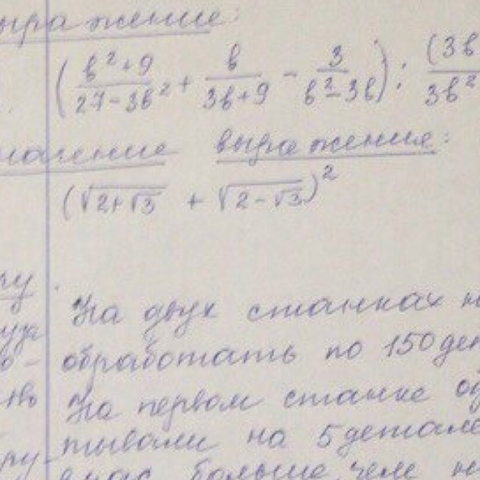 выражение:
(b²+9 / 27-3b² + b / 3b+9 - 3 / b²-3b) : (3b / 3b²
выражения:
(√2+√3 + √2-√3)²
На двух станках
обработать по 150 дет
На первом станке об
тывали на 5 детале
больше, чем